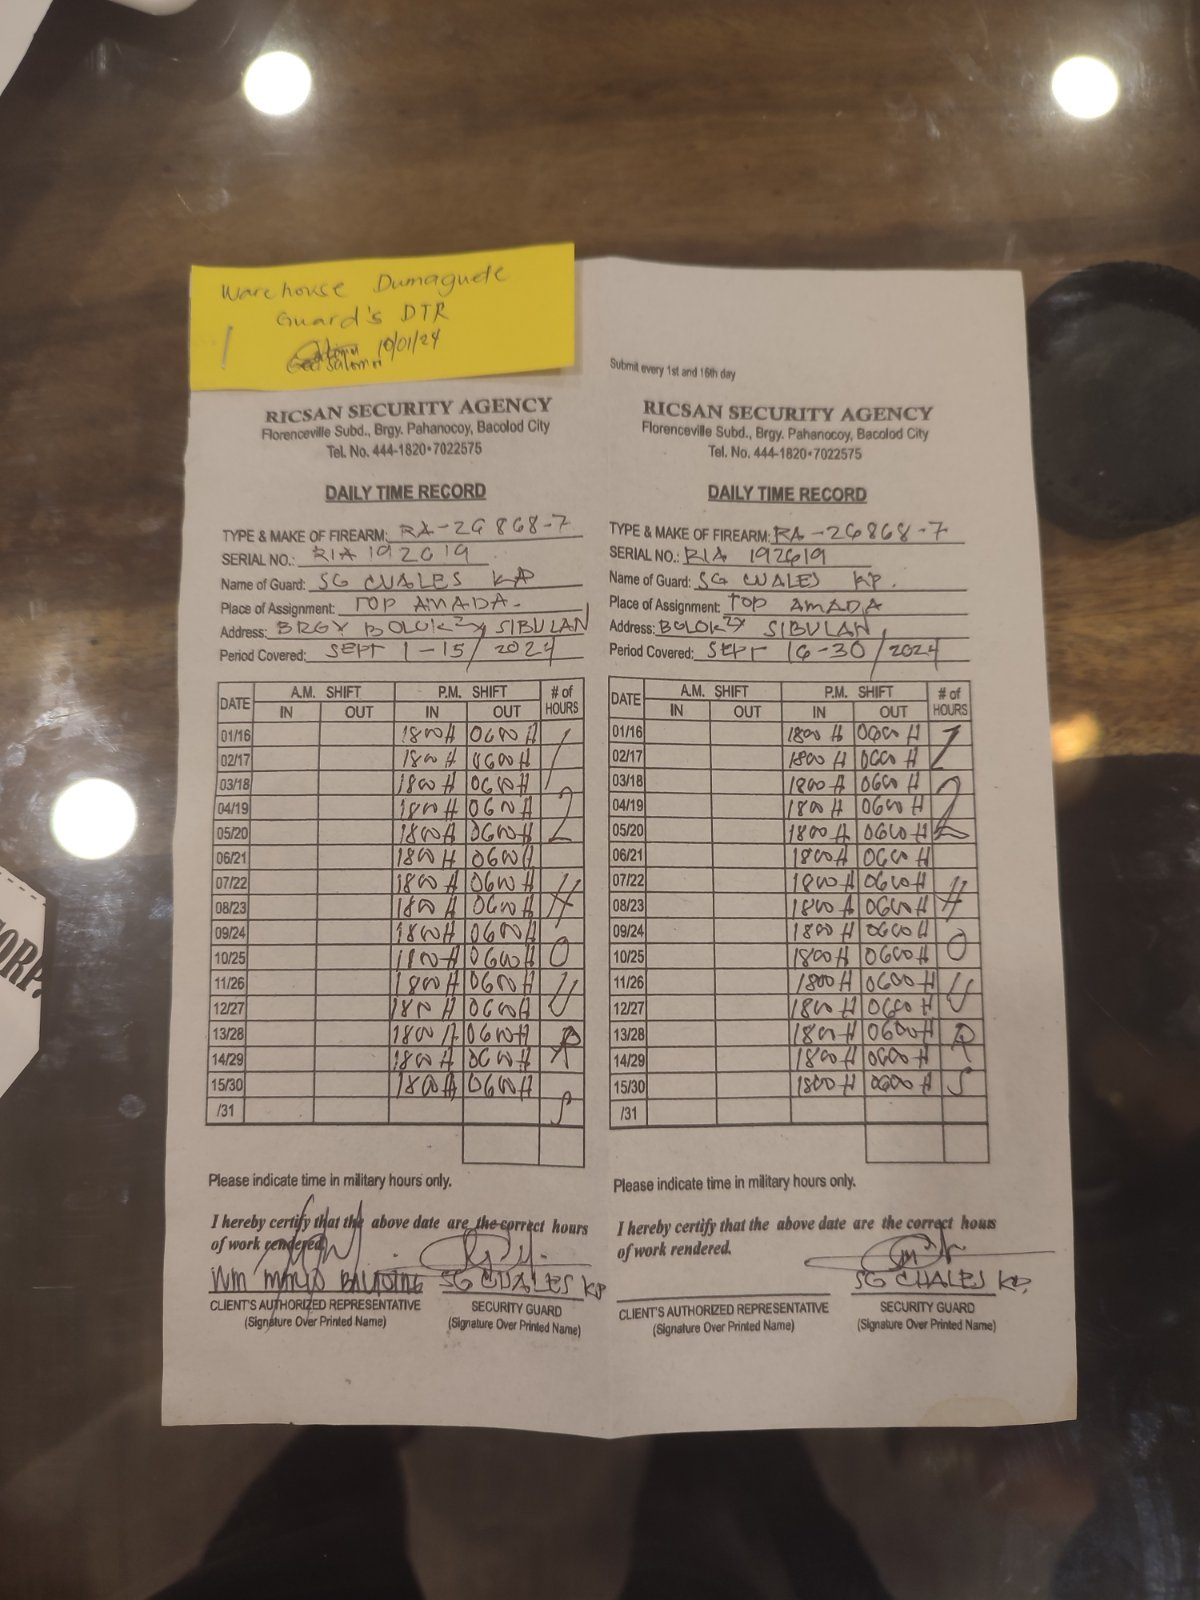 Warehouse Dumaguete
Guard's DTR
10/01/24
Salomon
ORP.
RICSAN SECURITY AGENCY
Florenceville Subd., Brgy. Pahanocoy, Bacolod City
Tel. No. 444-1820•7022575
DAILY TIME RECORD
TYPE & MAKE OF FIREARM: RA-26868-7
SERIAL NO.: RIA 192619
Name of Guard: SG CUALES KP
Place of Assignment: TOP AMADA.
Address: BRGY BOLOK2X, SIBULAN
Period Covered: SEPT 1-15/2024
DATE A.M. SHIFT P.M. SHIFT # of HOURS
IN OUT IN OUT
01/16 1800H 0600H
02/17 1800H 0600H
03/18 1800H 0600H
04/19 1800H 0600H
05/20 1800H 0600H
06/21 1800H 0600H
07/22 1800H 0600H
08/23 1800H 0600H
09/24 1800H 0600H
10/25 1800H 0600H
11/26 1800H 0600H
12/27 1800H 0600H
13/28 1800H 0600H
14/29 1800H 0600H
15/30 1800H 0600H
/31
12 HOURS
Please indicate time in military hours only.
I hereby certify that the above date are the correct hours
of work rendered.
SG CUALES KP
CLIENT'S AUTHORIZED REPRESENTATIVE SECURITY GUARD
(Signature Over Printed Name) (Signature Over Printed Name)
Submit every 1st and 16th day
RICSAN SECURITY AGENCY
Florenceville Subd., Brgy. Pahanocoy, Bacolod City
Tel. No. 444-1820•7022575
DAILY TIME RECORD
TYPE & MAKE OF FIREARM: RA-26868-7
SERIAL NO.: RIA 192619
Name of Guard: SG CUALES KP.
Place of Assignment: TOP AMADA
Address: BOLOK2X SIBULAN,
Period Covered: SEPT 16-30/2024
DATE A.M. SHIFT P.M. SHIFT # of HOURS
IN OUT IN OUT
01/16 1800H 0600H
02/17 1800H 0600H
03/18 1800H 0600H
04/19 1800H 0600H
05/20 1800H 0600H
06/21 1800H 0600H
07/22 1800H 0600H
08/23 1800H 0600H
09/24 1800H 0600H
10/25 1800H 0600H
11/26 1800H 0600H
12/27 1800H 0600H
13/28 1800H 0600H
14/29 1800H 0600H
15/30 1800H 0600H
/31
12 HOURS
Please indicate time in military hours only.
I hereby certify that the above date are the correct hours
of work rendered.
SG CUALES KP.
CLIENT'S AUTHORIZED REPRESENTATIVE SECURITY GUARD
(Signature Over Printed Name) (Signature Over Printed Name)